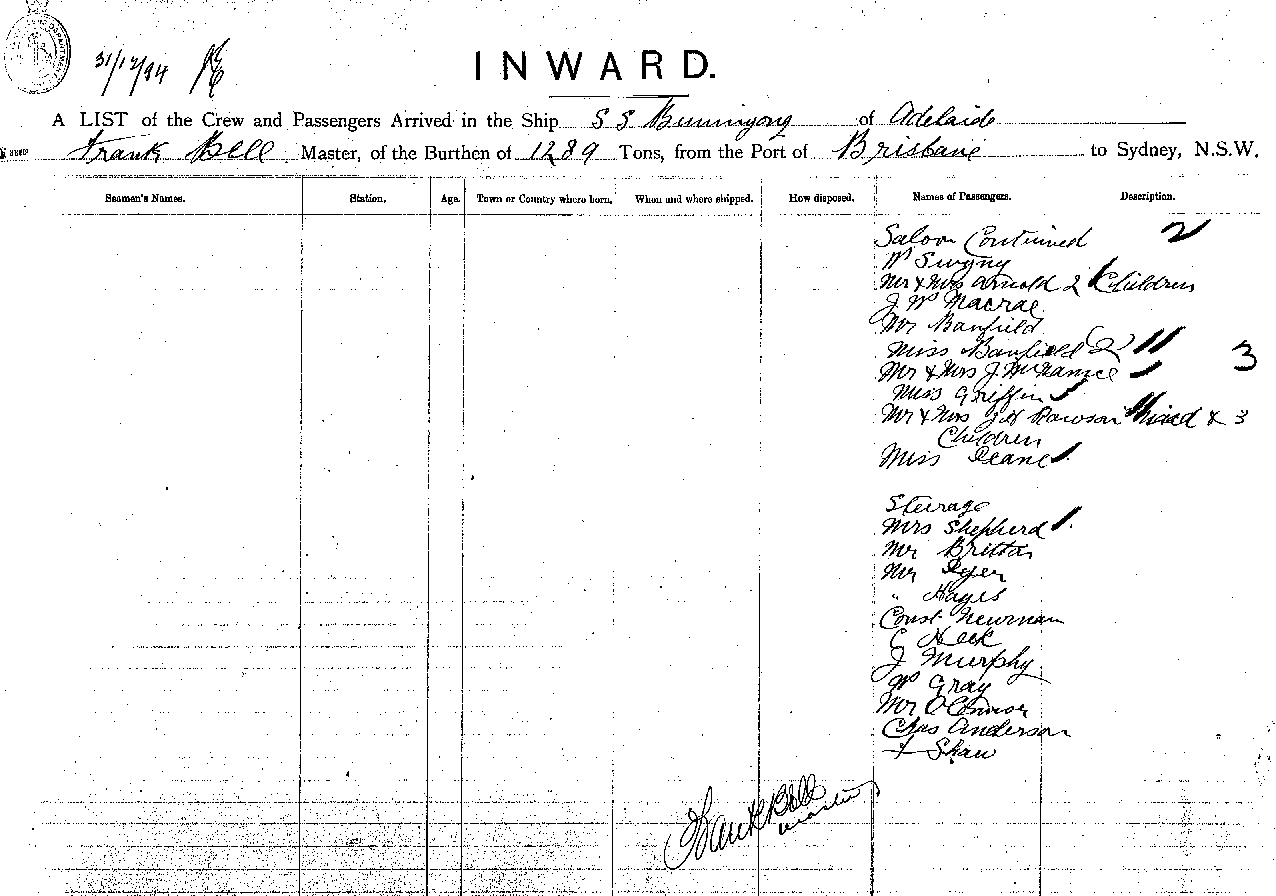 31/12/94
INWARD.
A LIST of the Crew and Passengers Arrived in the Ship S S Buninyong of Adelaide
Frank Bell Master, of the Burthen of 1289 Tons, from the Port of Brisbane to Sydney, N.S.W.
Seamen's Names. Station. Age. Town or Country where born. When and where shipped. How disposed. Names of Passengers. Description.
Saloon Continued 2
W Swyny
Mr & Mrs Arnold 2 Children
J W Macrae
Mr Banfield
Miss Banfield (2)
3
Mr & Mrs J. McNamee
Miss Griffin
Mr & Mrs J H Rawson Maid & 3
Children
Miss Deane
Steerage
Mrs Shepherd
Mr Britton
Mr Dyer
" Hayes
Const Newman
C Heek
J Murphy
W Gray
Mr O'Connor
Chas Anderson
F Shaw
Frank Bell
Master